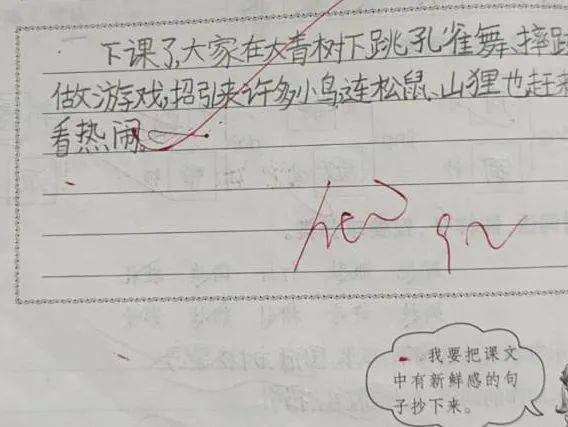 下课了,大家在大青树下跳孔雀舞、摔跤
做游戏,招引来许多小鸟,连松鼠、山狸也赶来
看热闹。
我要把课文
中有新鲜感的句
子抄下来。